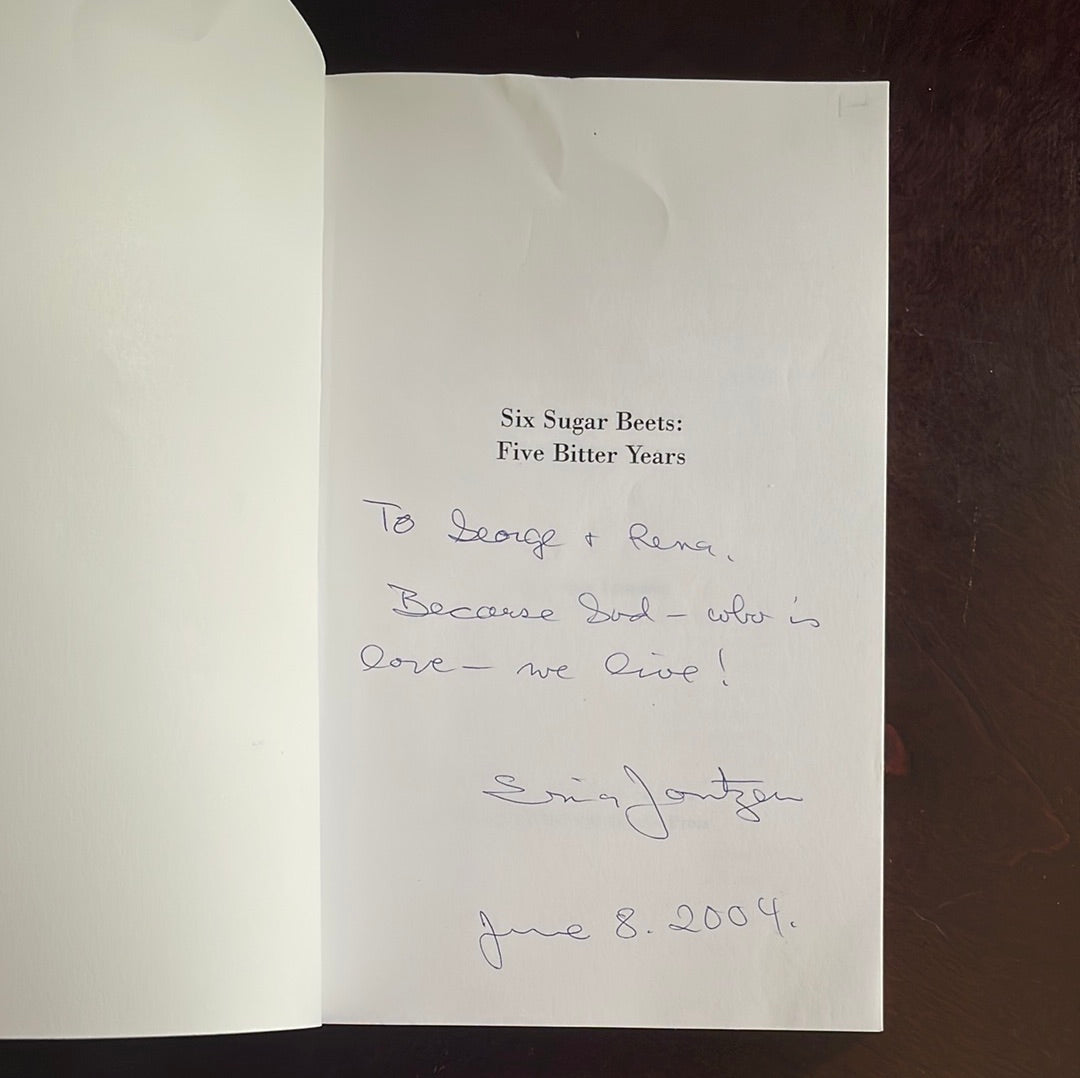 Six Sugar Beets:
Five Bitter Years
To George + Rena.
Because God - who is
love - we live!
Erica Jantzen
June 8. 2004.